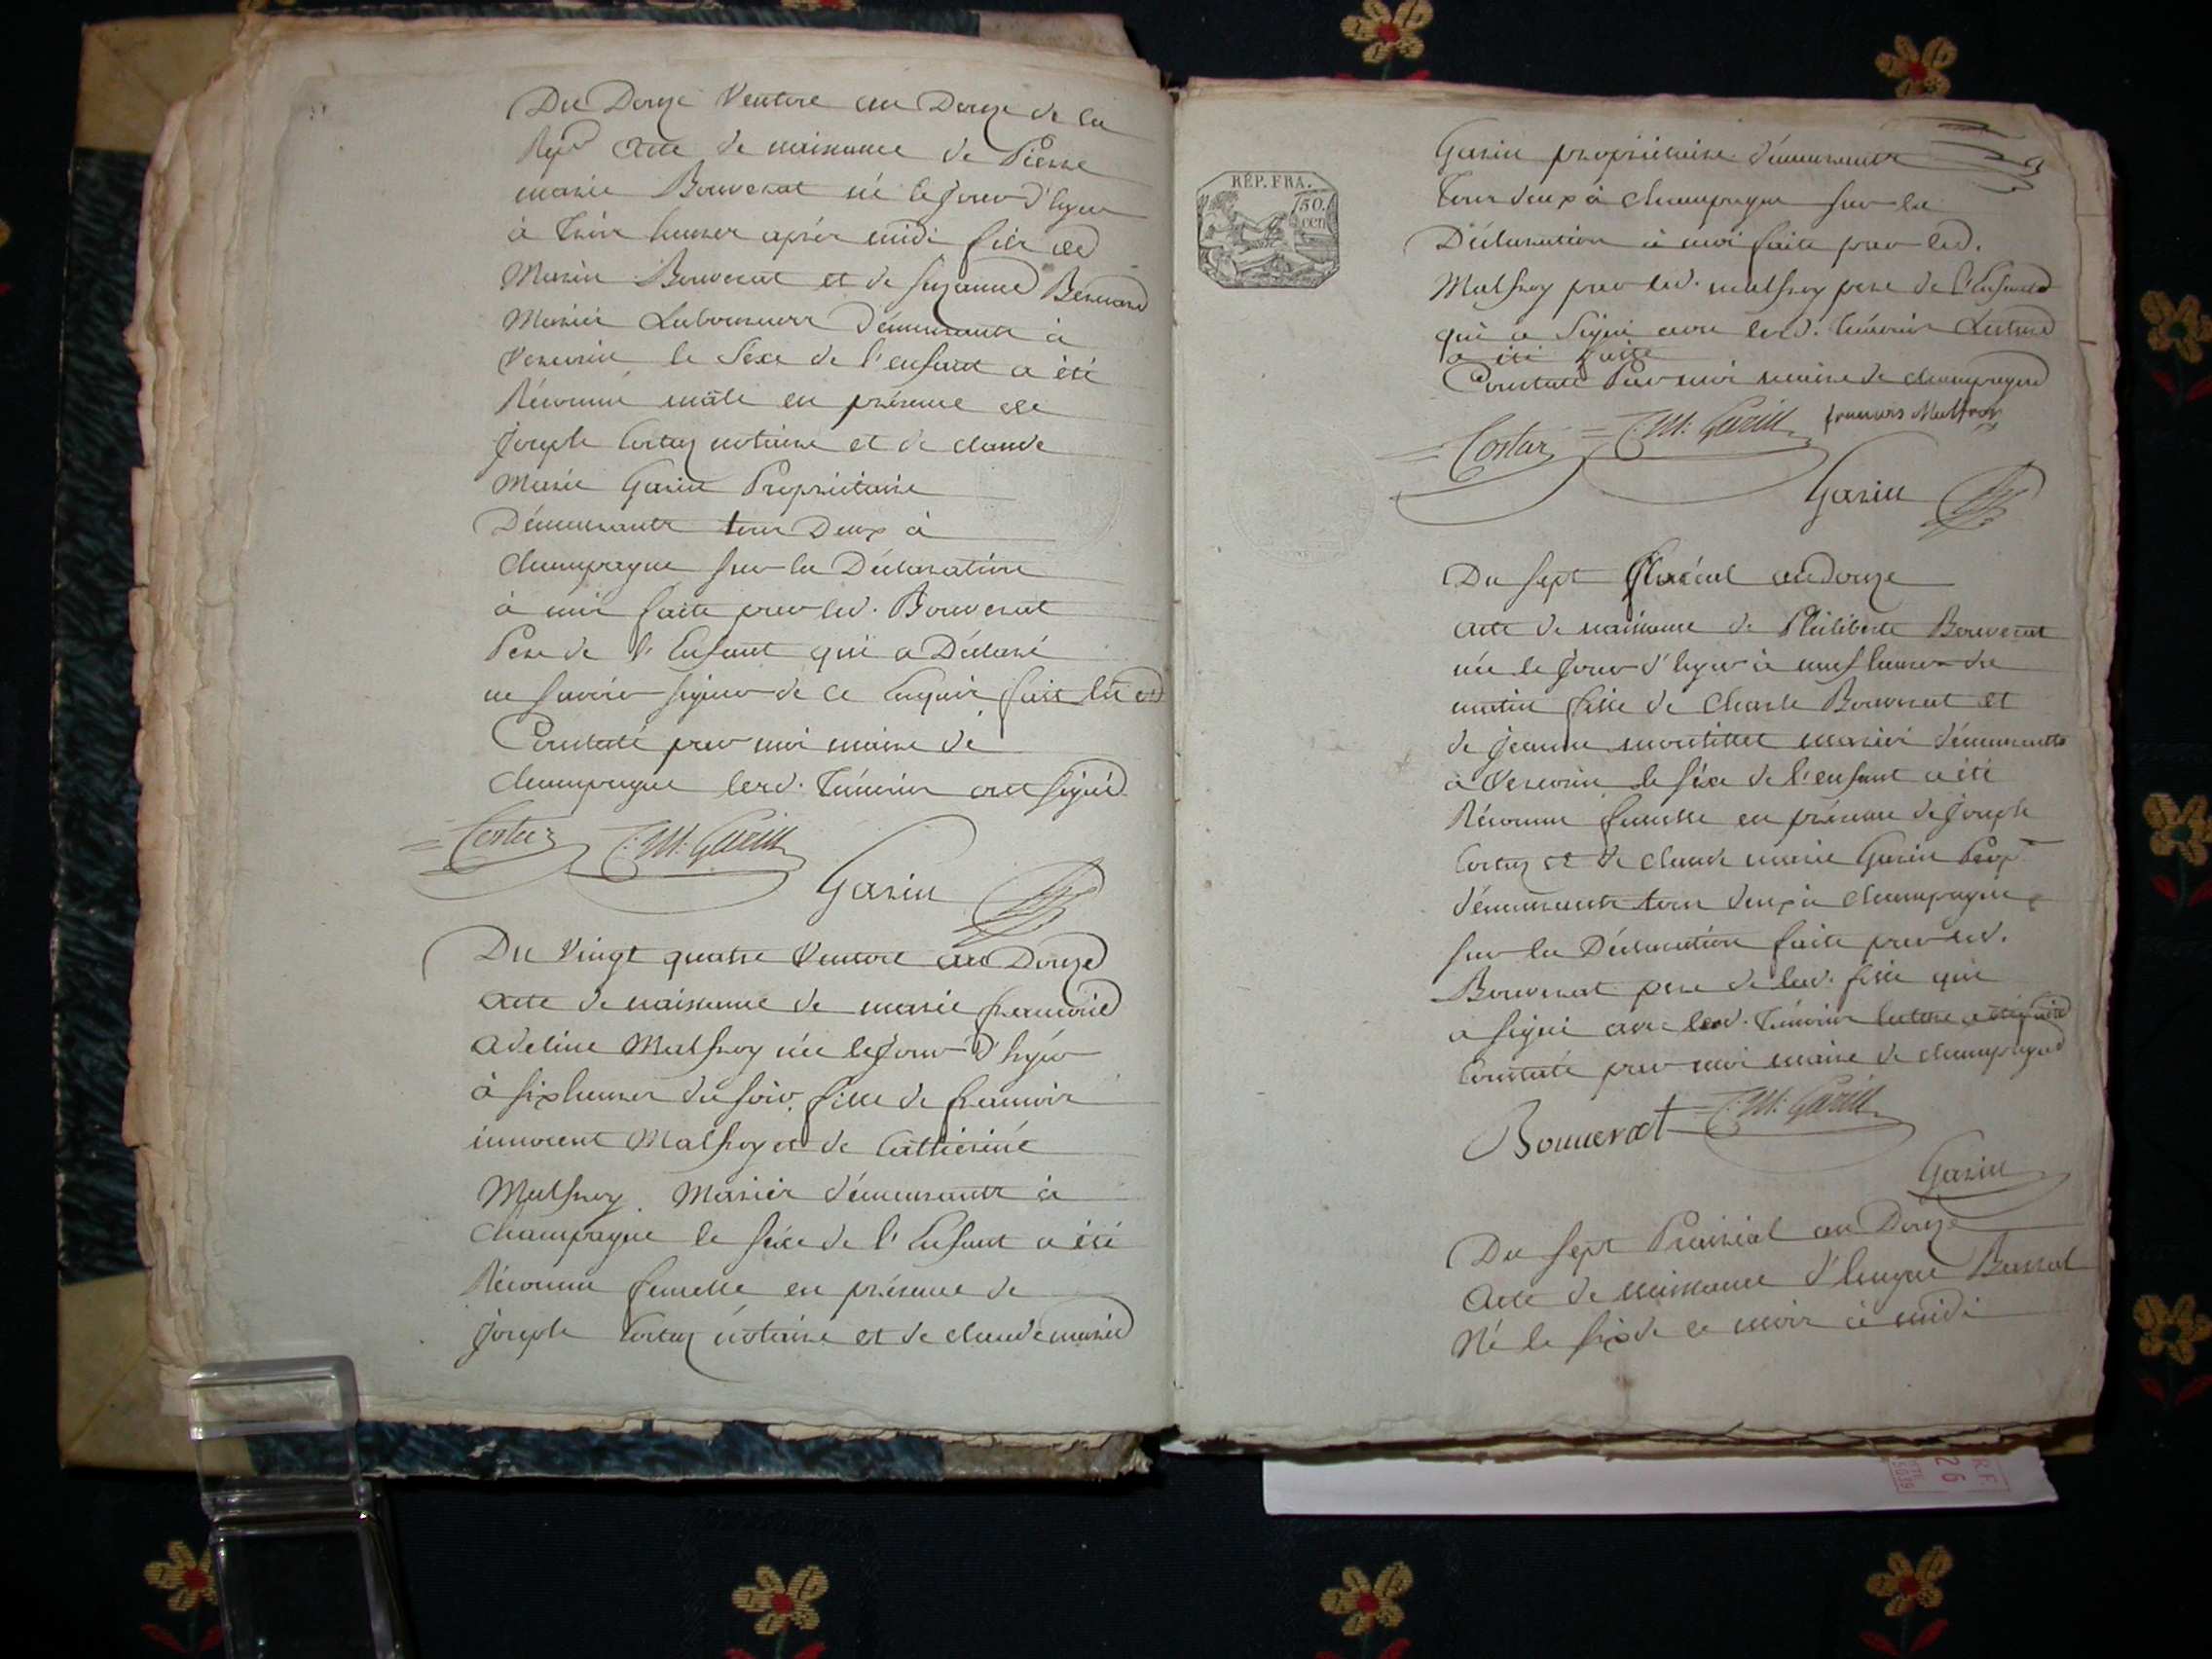 Du Douze Ventose an Douze de la
Rep. Acte de naissance de Pierre
marie Bouverat né le jour d'hyer
à trois heures après midi fils de
Marin Bouverat et de suzanne Bernard
Mariés Laboureurs Démeurants à
le Séxe de l'enfant a été
Réconnu mâle en présence de
joseph Costaz notaire et de claude
Marie Garin Propriétaire
Démeurants tous Deux à
champagne sur la Déclaration
à moi faite par led. Bouverat
Pere de l'Enfant qui a Déclaré
ne savoir signer de ce Enquis fait lu et
Constaté par moi maire de
champagne lesd. Témoins ont signé
Costaz C: M: Garin
Garin
Du Vingt quatre Ventose an Douze
Acte de naissance de marie francoise
Adeline Malfroy née le jour d'hyér
à six heures du soir fille de francois
innocent Malfroy et de Cathérine
Malfroy Mariés démeurants à
Champagne le séxe de l'Enfant a été
Réconnu femelle en présence de
joseph Costaz notaire et de claude marie
RÉP. FRA.
50.
cen
Garin propriétaire démeurants
tous deux à champagne sur la
Déclaration à moi faite par led.
Malfroy par led. malfroy pere de l'Enfant
qui a Signé avec lesd. témoins Lecture
a été faite
Constaté Par moi maire de champagne
Costaz C: M: Garin francois Malfroy
Garin
Du sept floréal an douze
Acte de naissance de Philiberte Bouverat
née le jour d'hyer à neuf heures du
matin fille de Charle Bouverat et
de jeanne montillet mariés démeurants
à le séxe de l'enfant a été
Réconnu femelle en présence de joseph
Costaz et de claude marie Garin Prop.
démeurants tous deux à champagne
sur la Déclaration faite par led.
Bouverat pere de lad. fille qui
a signé avec lesd. témoins lecture a été faite
Constaté par moi maire de champagne
Bouuerat C: M: Garin
Garin
Du sept Prairial an Douze
Acte de naissance d'
Né le six de ce mois à midi
R.F.
26